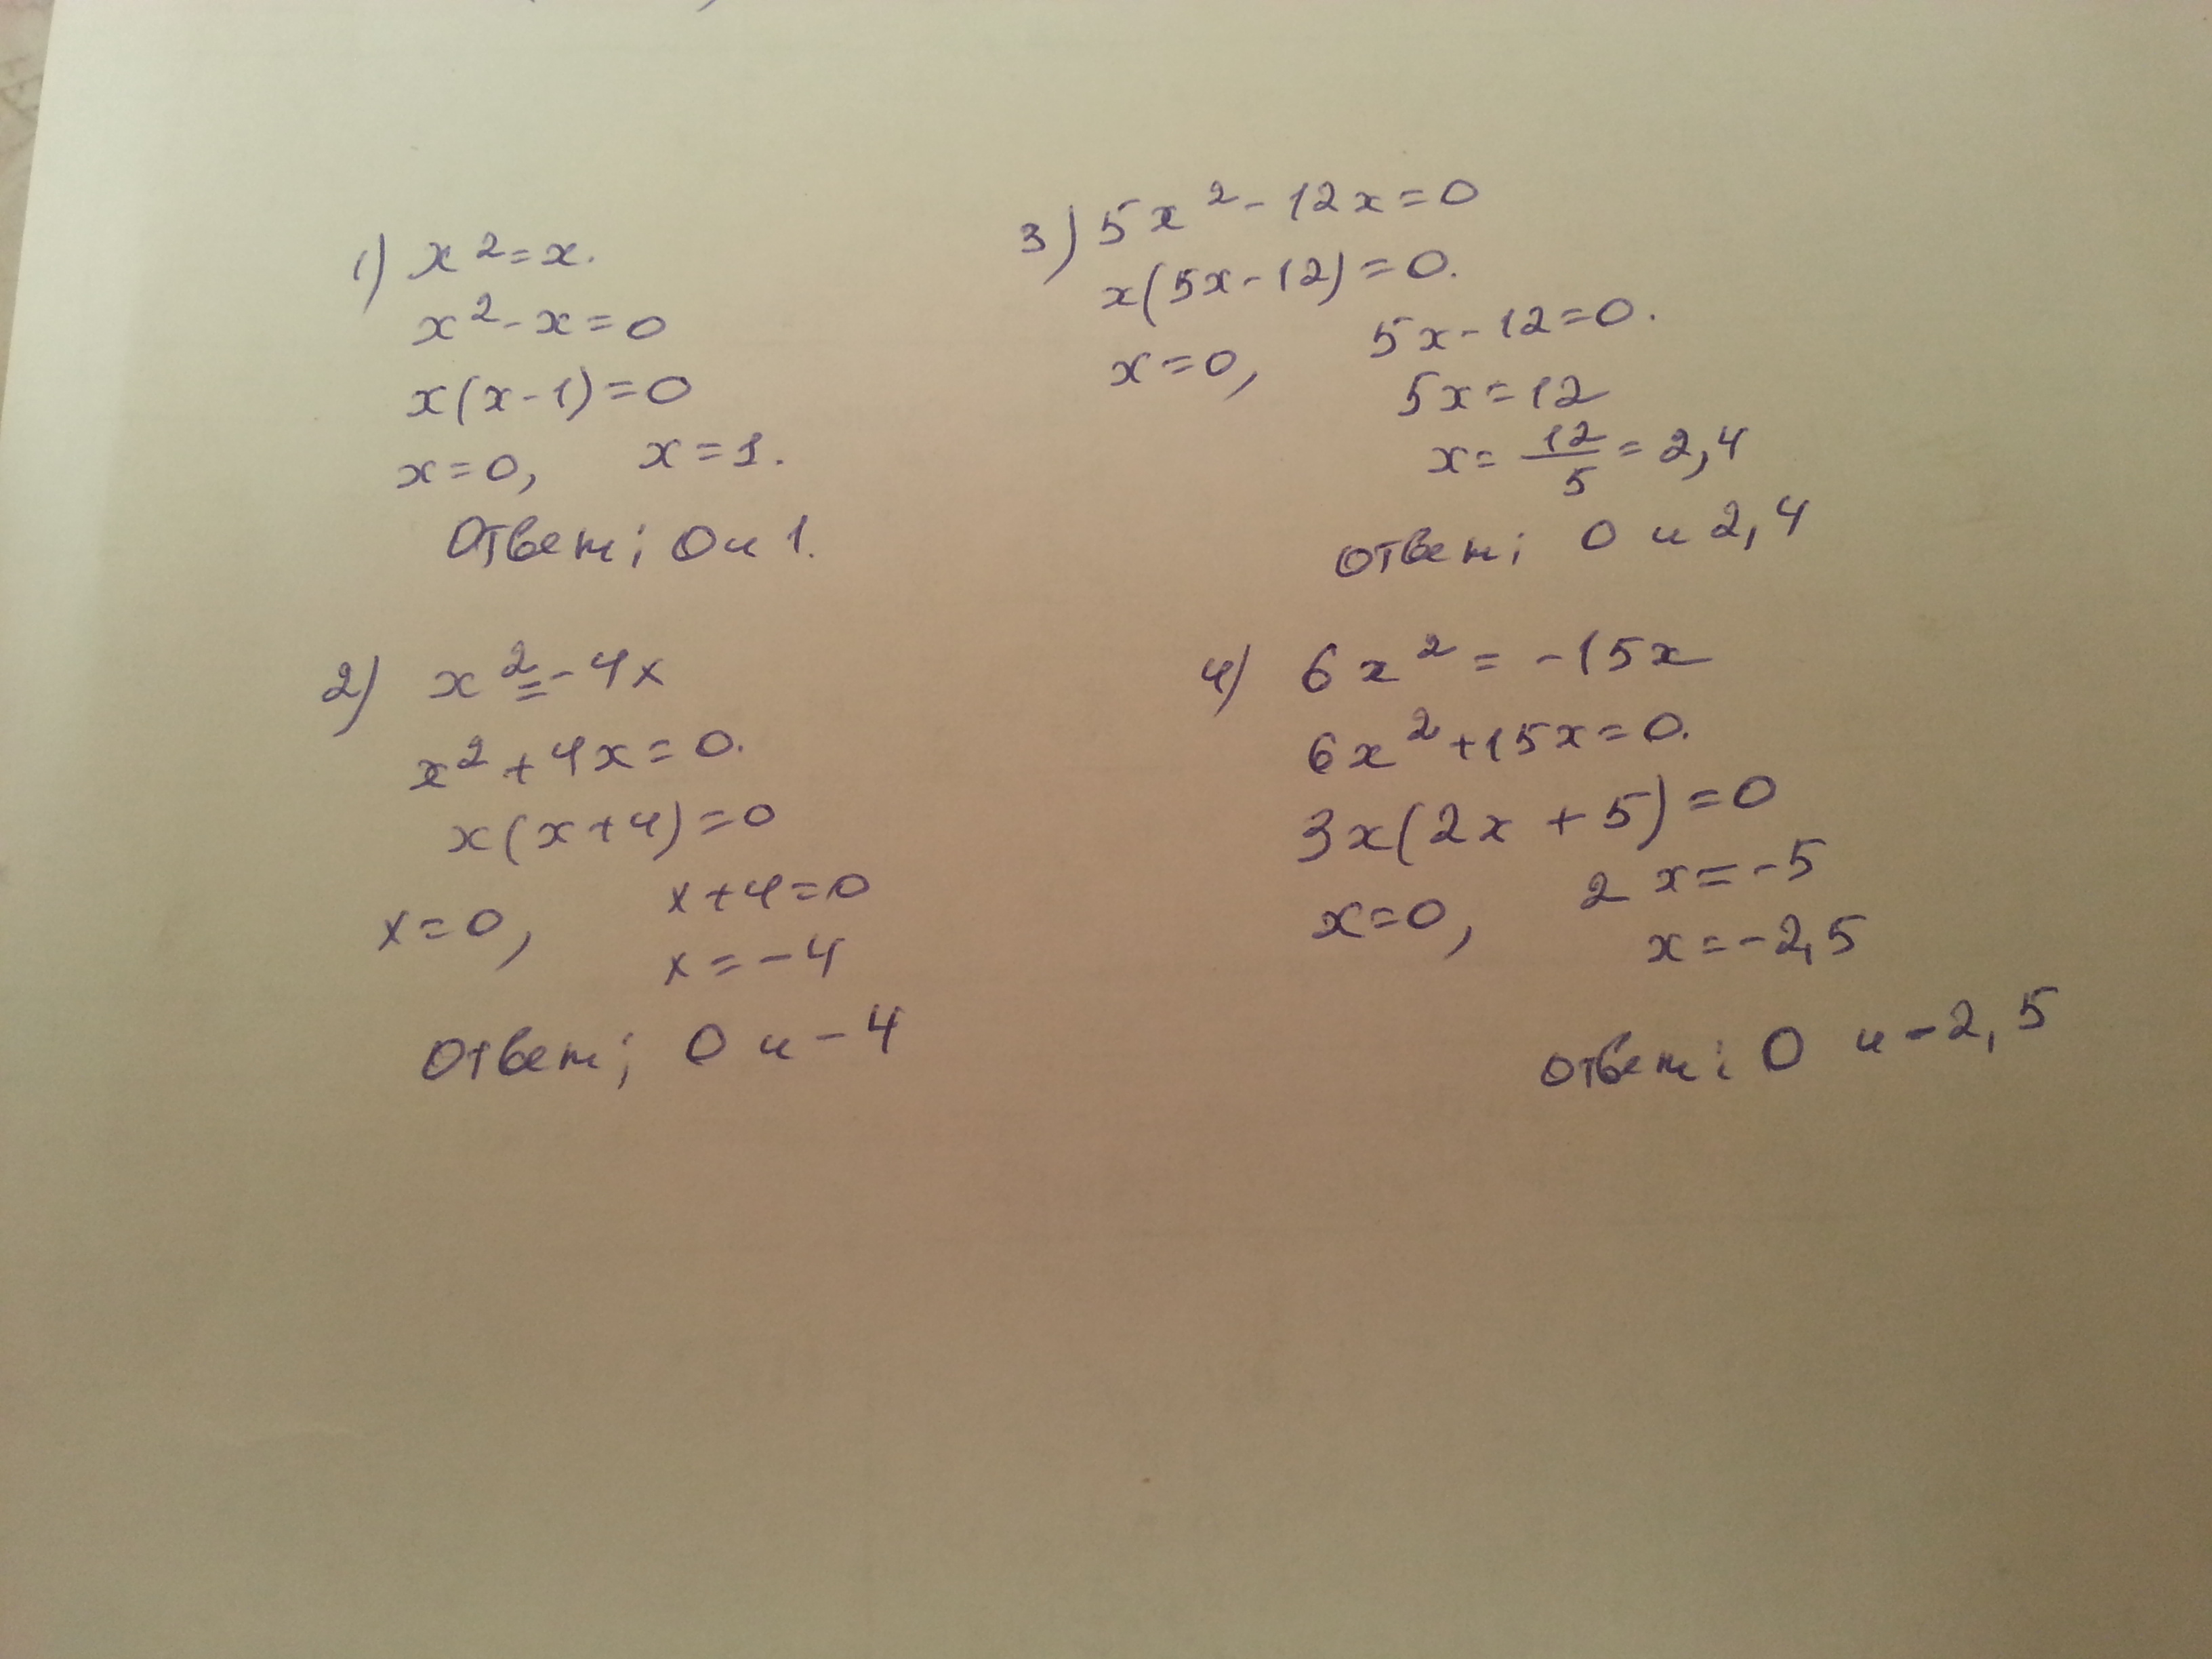 1) x² = x.
x² - x = 0
x(x - 1) = 0
x = 0, x = 1.
Ответ: 0 и 1.
2) x² = -4x
x² + 4x = 0.
x(x + 4) = 0
x = 0, x + 4 = 0
x = -4
Ответ: 0 и -4
3) 5x² - 12x = 0
x(5x - 12) = 0.
x = 0, 5x - 12 = 0.
5x = 12
x = 12/5 = 2,4
Ответ: 0 и 2,4
4) 6x² = -15x
6x² + 15x = 0.
3x(2x + 5) = 0
x = 0, 2x = -5
x = -2,5
Ответ: 0 и -2,5